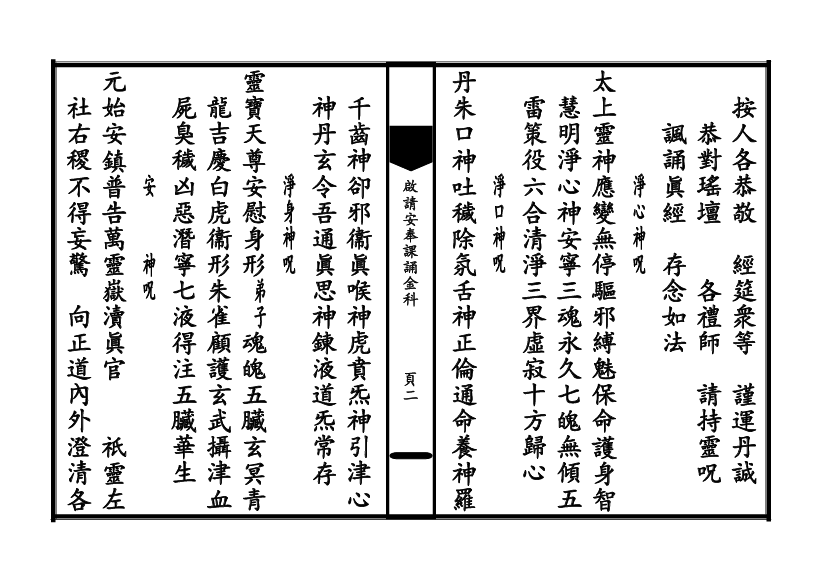 按人各恭敬　經筵衆等　謹運丹誠
恭對瑤壇　各禮師　請持靈呪
諷誦眞經　存念如法
淨心神呪
太上靈神應變無停驅邪縛魅保命護身智
慧明淨心神安寧三魂永久七魄無傾五
雷策役六合清淨三界虛寂十方歸心
淨口神呪
丹朱口神吐穢除氛舌神正倫通命養神羅
啟請安奉課誦金科　頁二
千齒神卻邪衞眞喉神虎賁炁神引津心
神丹玄令吾通眞思神鍊液道炁常存
淨身神呪
靈寶天尊安慰身形弟子魂魄五臟玄冥青
龍吉慶白虎衞形朱雀顧護玄武攝津血
屍臭穢凶惡潛寧七液得注五臟華生
安　神呪
元始安鎮普告萬靈嶽瀆眞官　祇靈左
社右稷不得妄驚　向正道內外澄清各